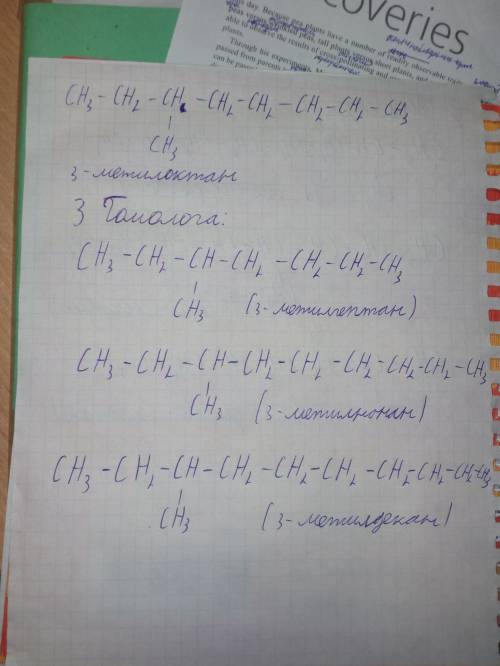 coveries
CH₃ - CH₂ - CH - CH₂ - CH₂ - CH₂ - CH₂ - CH₃
CH₃
3-метилоктан
3 Гомолога:
CH₃ - CH₂ - CH - CH₂ - CH₂ - CH₂ - CH₃
CH₃ (3-метилгептан)
CH₃ - CH₂ - CH - CH₂ - CH₂ - CH₂ - CH₂ - CH₂ - CH₃
CH₃ (3-метилнонан)
CH₃ - CH₂ - CH - CH₂ - CH₂ - CH₂ - CH₂ - CH₂ - CH₂ - CH₃
CH₃ (3-метилдекан)